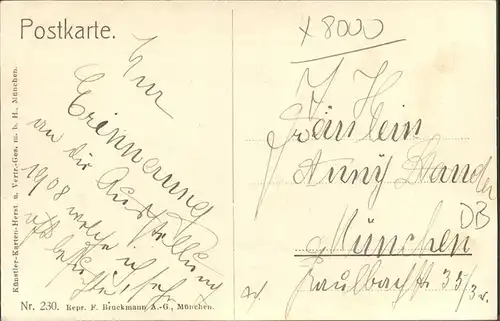 Postkarte.
Zur
Erinnerung
an die Ausstellung
1908 welche ich sehr
oft besuchte.
Künstler-Karten-Herst. u. Vertr.-Ges. m. b. H., München.
Nr. 230. Repr. F. Bruckmann A.-G., München.
x 8000
Fräulein
Anny
DB
München
Kaulbachstr 35/3 r.